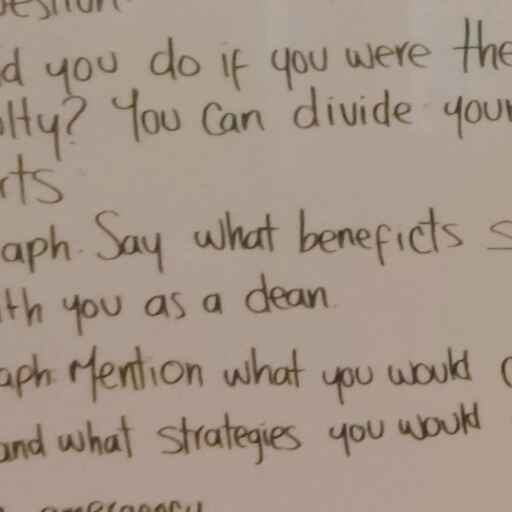 d you do if you were the
lty? You can divide your
rts
aph. Say what beneficts s
ith you as a dean.
aph. Mention what you would
and what strategies you would